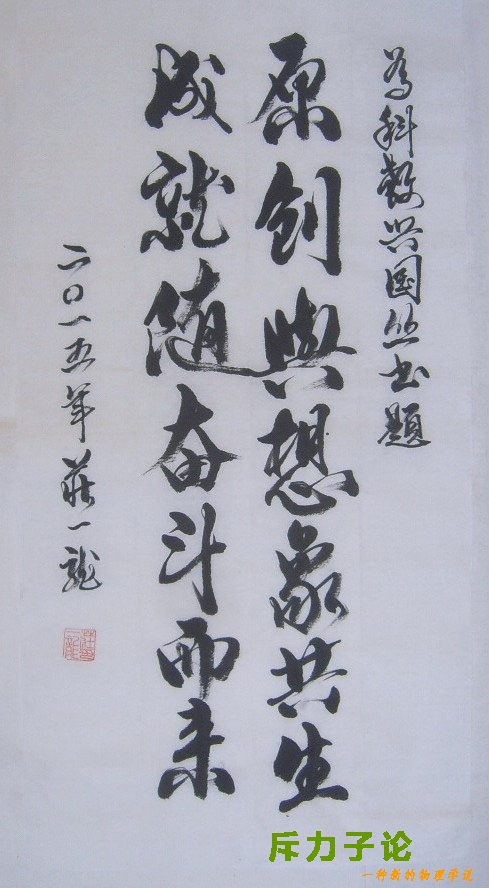 為科教兴国丛书题
原创與想象共生
成就随奋斗而来
二〇一五年莊一龙
斥力子论
一种新的物理学说